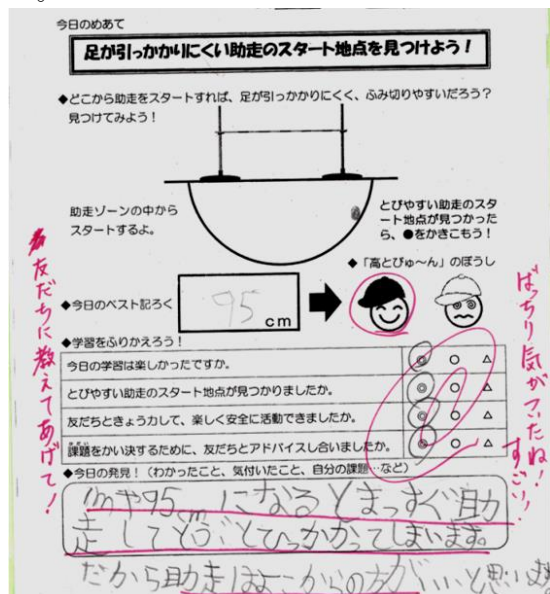 今日のめあて
足が引っかかりにくい助走のスタート地点を見つけよう！
◆どこから助走をスタートすれば、足が引っかかりにくく、ふみ切りやすいだろう？
見つけてみよう！
助走ゾーンの中から
スタートするよ。
とびやすい助走のスタ
ート地点が見つかった
ら、●をかきこもう！
◆「高とびゅ～ん」のぼうし
◆今日のベスト記ろく
95
cm
◆学習をふりかえろう！
今日の学習は楽しかったですか。 ◎ ○ △
とびやすい助走のスタート地点が見つかりましたか。 ◎ ○ △
友だちときょう力して、楽しく安全に活動できましたか。 ◎ ○ △
課題をかい決するために、友だちとアドバイスし合いましたか。 ◎ ○ △
かだい
◆今日の発見！（わかったこと、気付いたこと、自分の課題…など）
mや95cmになるとまっすぐ助
走してとうとひっかかってしまいます。
だから助走はよこからの方がいいと思います
ばっちり気がついたね！
すごい！
友だちに教えてあげて！